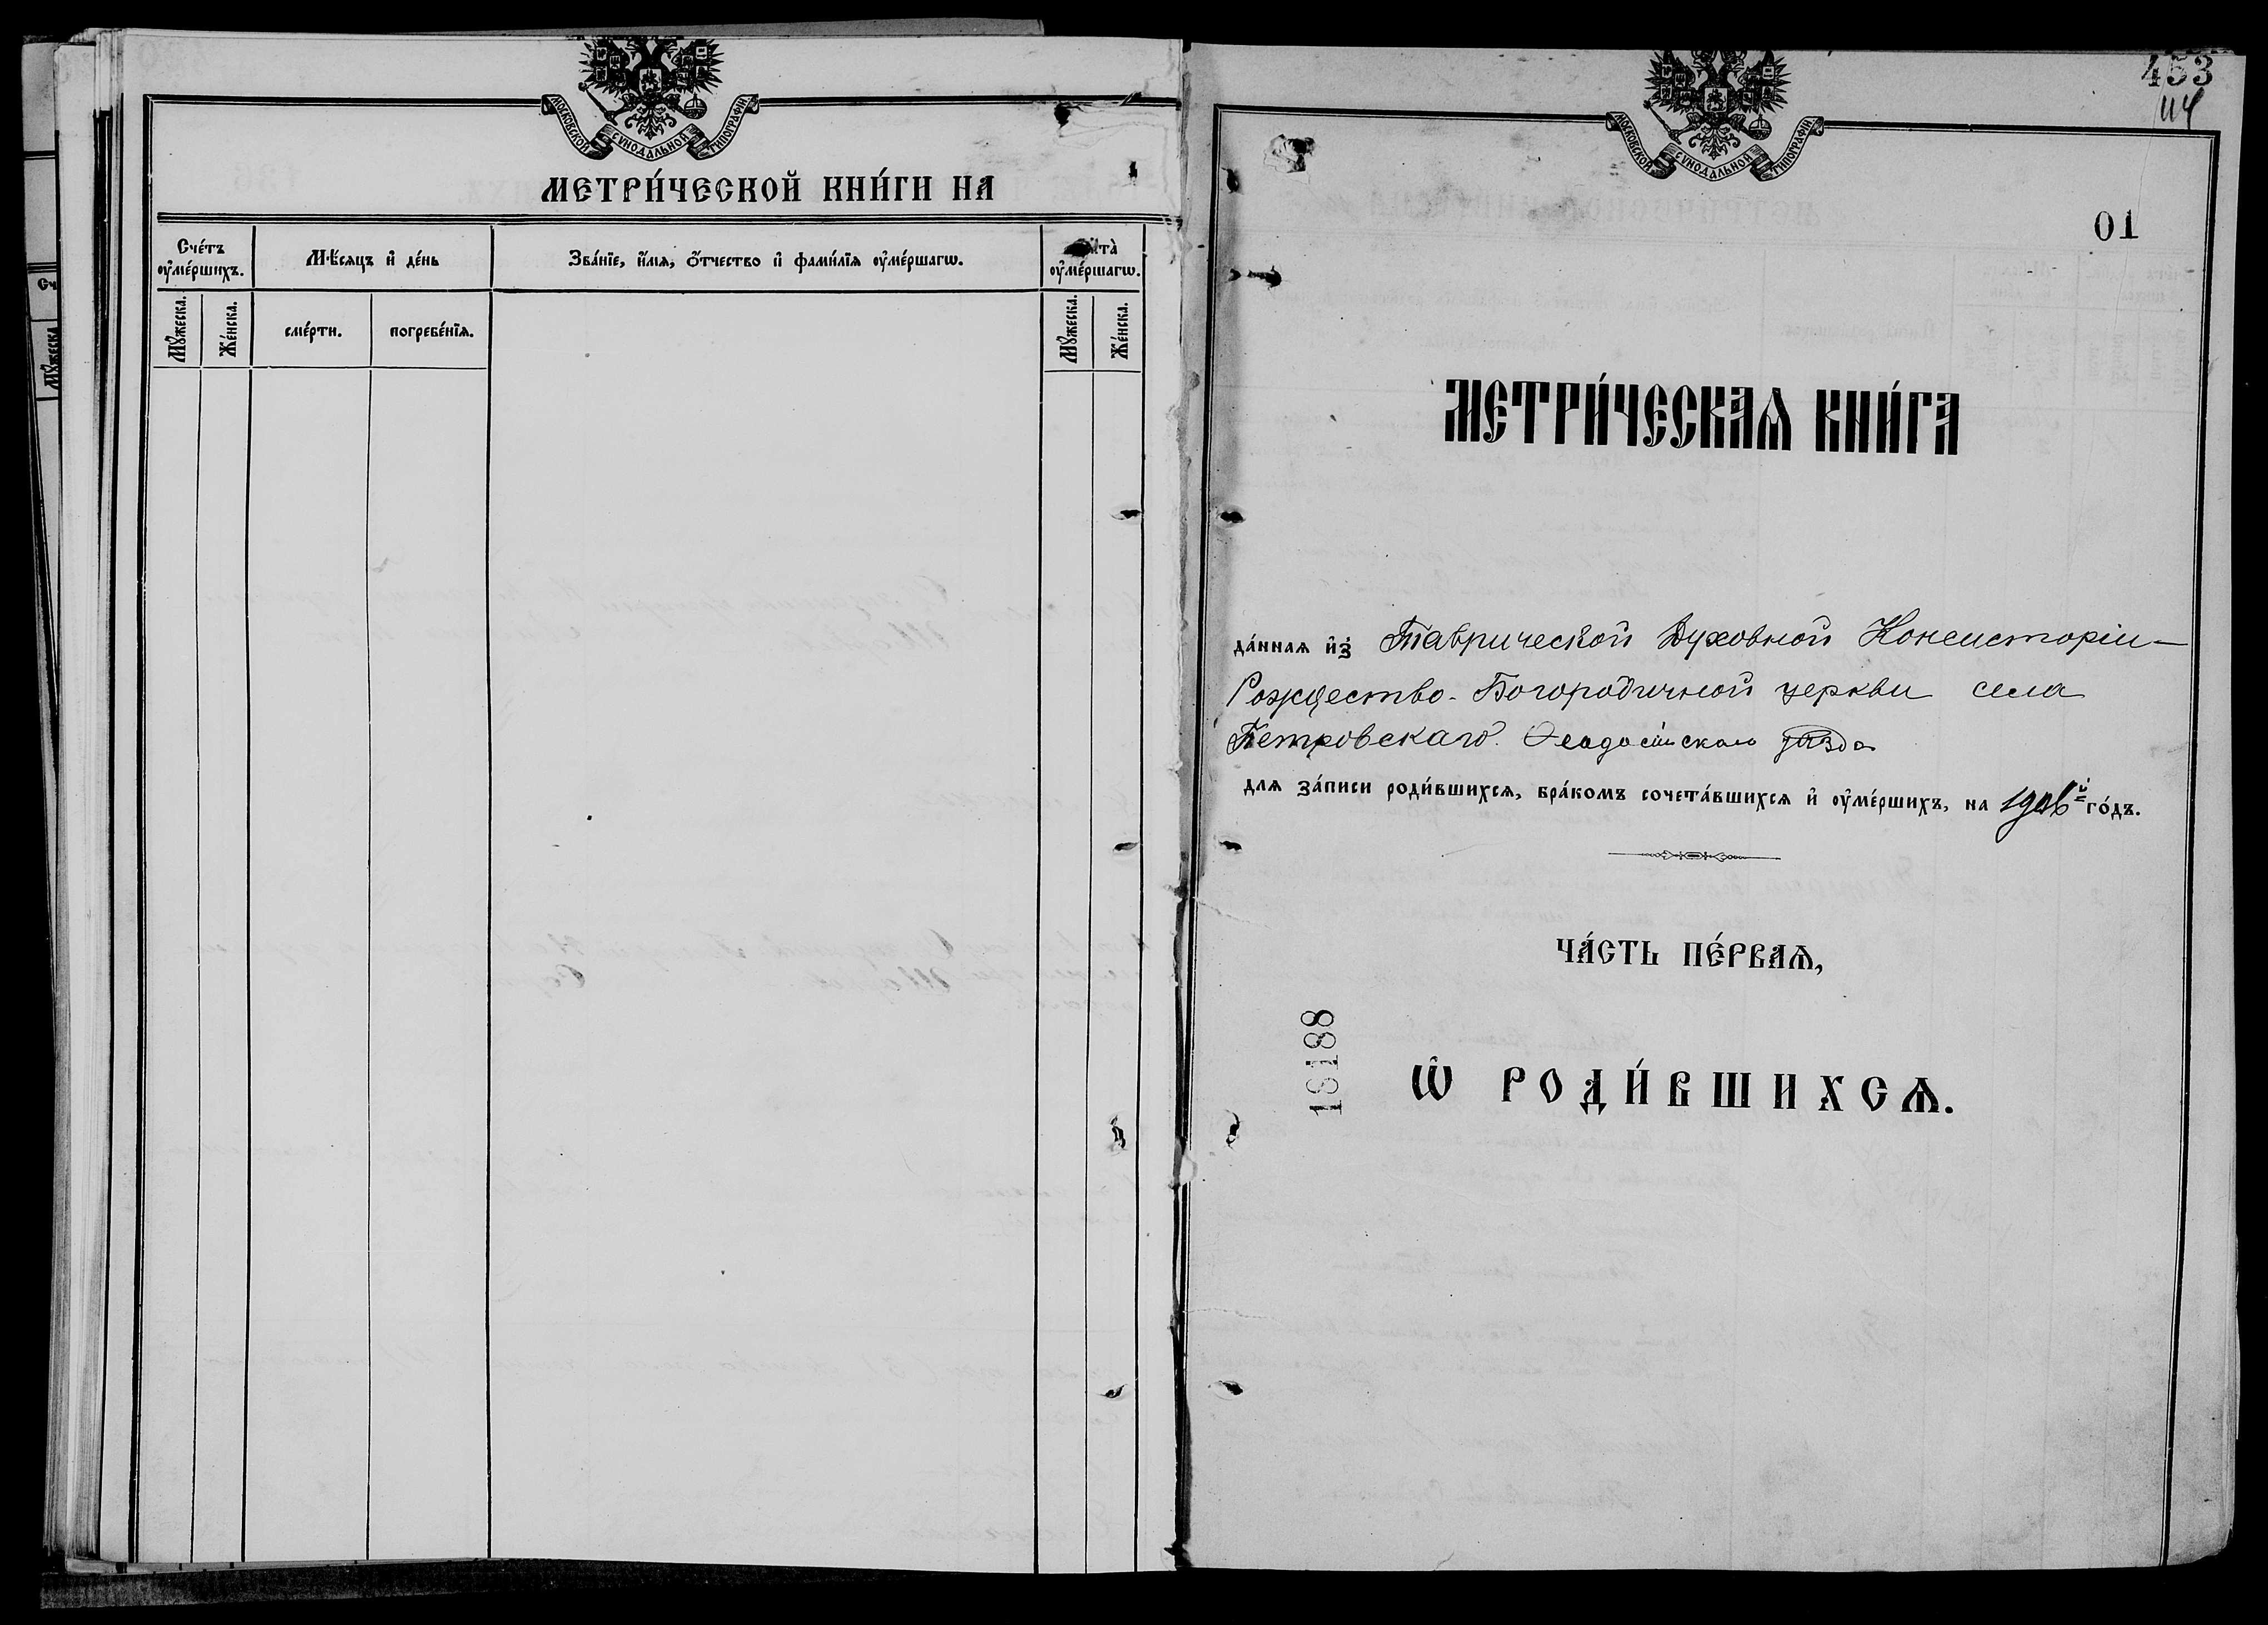 МОСКОВСКОЙ СѴНОДАЛЬНОЙ ТИПОГРАФІИ
МЕТРИ́ЧЕСКОЙ КНИ́ГИ НА
Сче́тъ ᲂу҆ме́ршихъ.
Мѣ́сяцъ и҆ де́нь
Зва́нїе, и҆́мѧ, ѻ҆́тчество и҆ фами́лїѧ ᲂу҆ме́ршагѡ.
Лѣ́та̀ ᲂу҆ме́ршагѡ.
Мꙋ́жеска.
Же́нска.
сме́рти.
погребе́нїѧ.
Мꙋ́жеска.
Же́нска.
453
114
МОСКОВСКОЙ СѴНОДАЛЬНОЙ ТИПОГРАФІИ
01
МЕТРИ́ЧЕСКАѦ КНИ́ГА
да́ннаѧ и҆з̾ Таврической Духовной Консисторіи
Рождество-Богородичной церкви села
Петровскаго Ѳеодосійскаго уѣзда
длѧ за́писи роди́вшихсѧ, бра́комъ сочета́вшихсѧ и҆ ᲂу҆ме́ршихъ, на 1906й го́дъ.
ЧА́СТЬ ПЕ́РВАѦ,
18188
Ѡ҆ РОДИ́ВШИХСѦ.